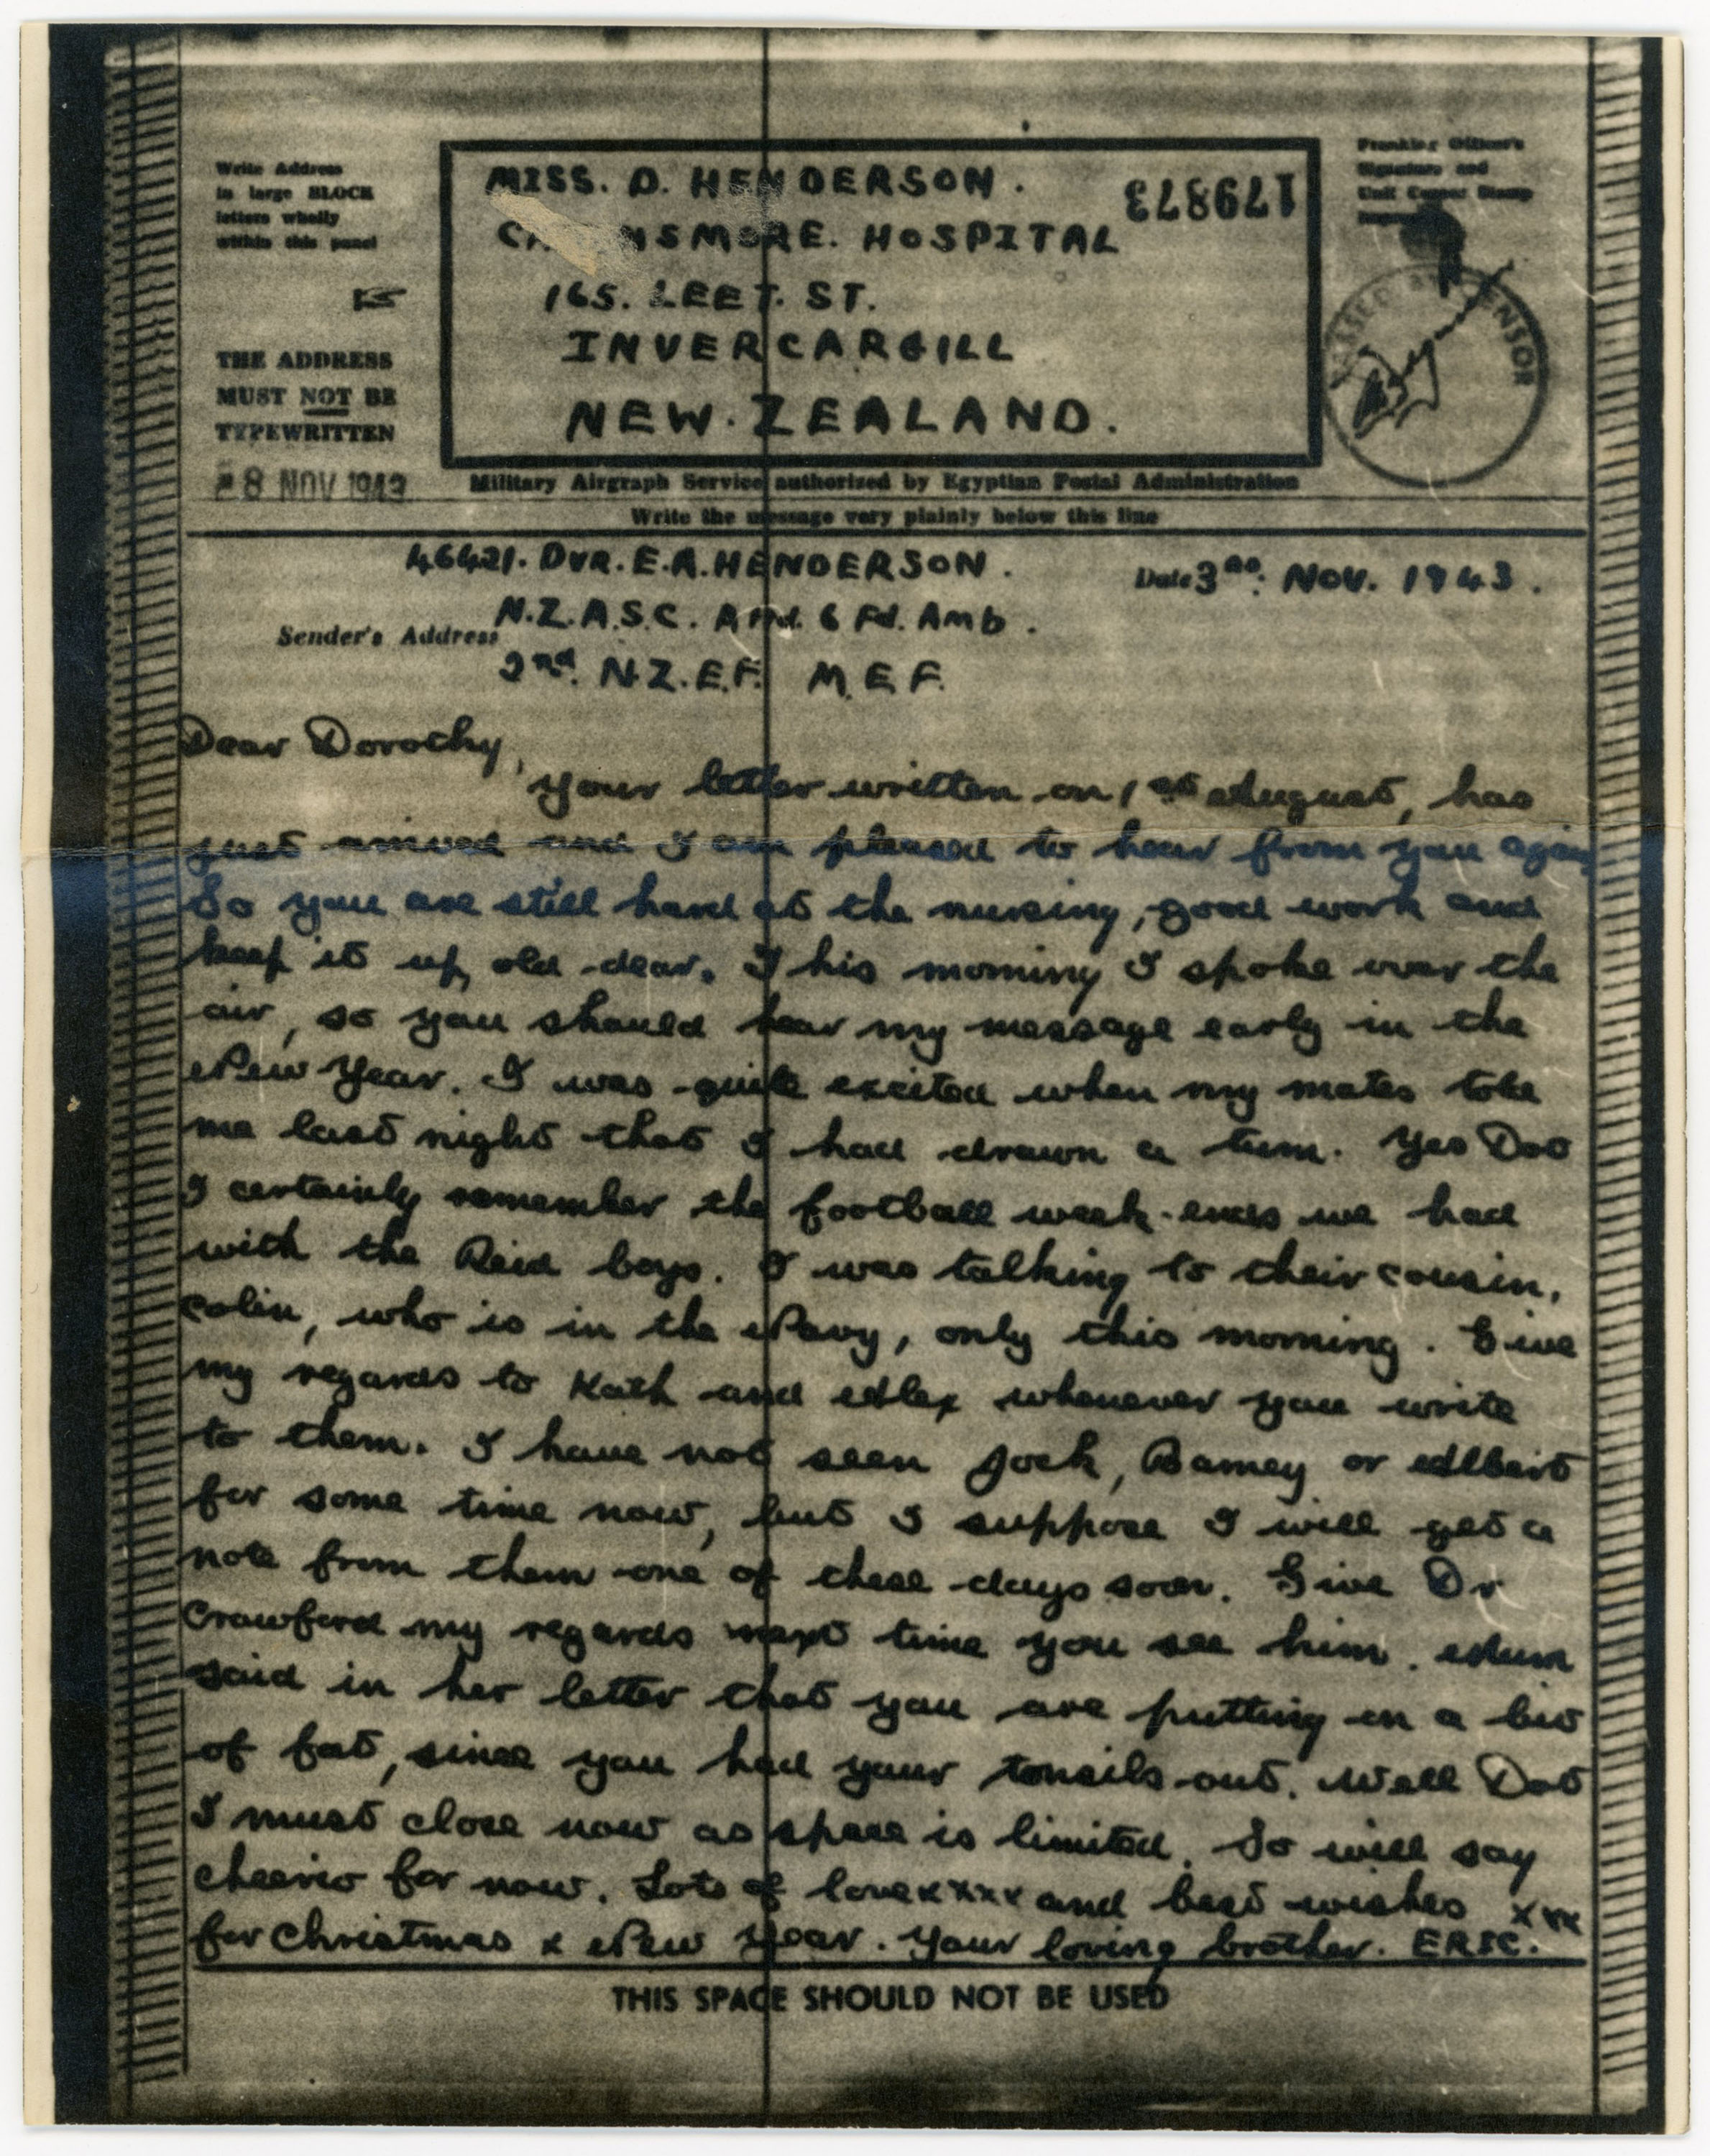 Write Address
in large BLOCK
letters wholly
within this panel
THE ADDRESS
MUST NOT BE
TYPEWRITTEN
8 NOV 1943
MISS. D. HENDERSON.
179873
HOSPITAL
165. LEET. ST.
INVERCARGILL
NEW. ZEALAND.
Franking Officer's
Signature and
Unit Censor Stamp
PASSED BY CENSOR
Military Airgraph Service authorized by Egyptian Postal Administration
Write the message very plainly below this line
46421. DVR. E.A. HENDERSON.
Date 3RD. NOV. 1943.
N.Z.A.S.C. Attd. 6 Fd. Amb.
Sender's Address
2nd. N.Z.E.F. M.E.F.
Dear Dorothy,
your letter written on 1st August, has
just arrived and I am pleased to hear from you again
So you are still hard at the nursing, good work and
keep it up, old dear. This morning I spoke over the
air, so you should hear my message early in the
New Year. I was quite excited when my mates told
me last night that I had drawn a turn. Yes Dot
I certainly remember the football week-ends we had
with the Reid boys. I was talking to their cousin,
Colin, who is in the Navy, only this morning. Give
my regards to Kath and Alex whenever you write
to them. I have not seen Jock, Barney or Albert
for some time now, but I suppose I will get a
note from them one of these days soon. Give Dr
Crawford my regards next time you see him. Mum
said in her letter that you are putting on a bit
of fat, since you had your tonsils out. Well Dot
I must close now as space is limited. So will say
cheerio for now. Lots of love xxxx and best wishes xxx
for Christmas & New Year. Your loving brother. ERIC.
THIS SPACE SHOULD NOT BE USED